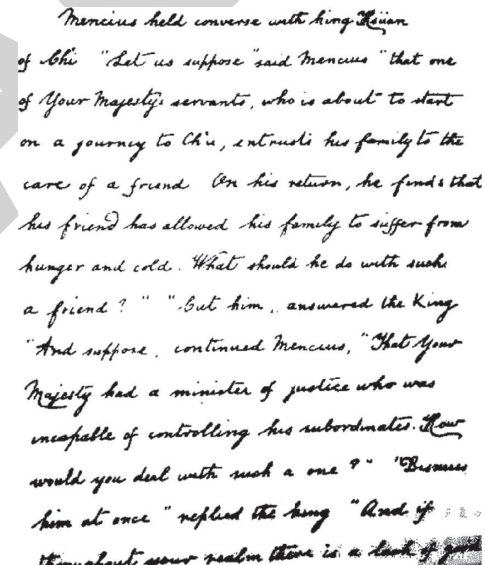 Mencius held converse with King Hsüan
of Chi "Let us suppose" said Mencius "that one
of Your Majesty's servants, who is about to start
on a journey to Ch'u, entrusts his family to the
care of a friend On his return, he finds that
his friend has allowed his family to suffer from
hunger and cold. What should he do with such
a friend?" "Cut him, answered the King
"And suppose, continued Mencius, "That Your
Majesty had a minister of justice who was
incapable of controlling his subordinates. How
would you deal with such a one?" "Dismiss
him at once" replied the king "And if
throughout your realm there is a lack of good